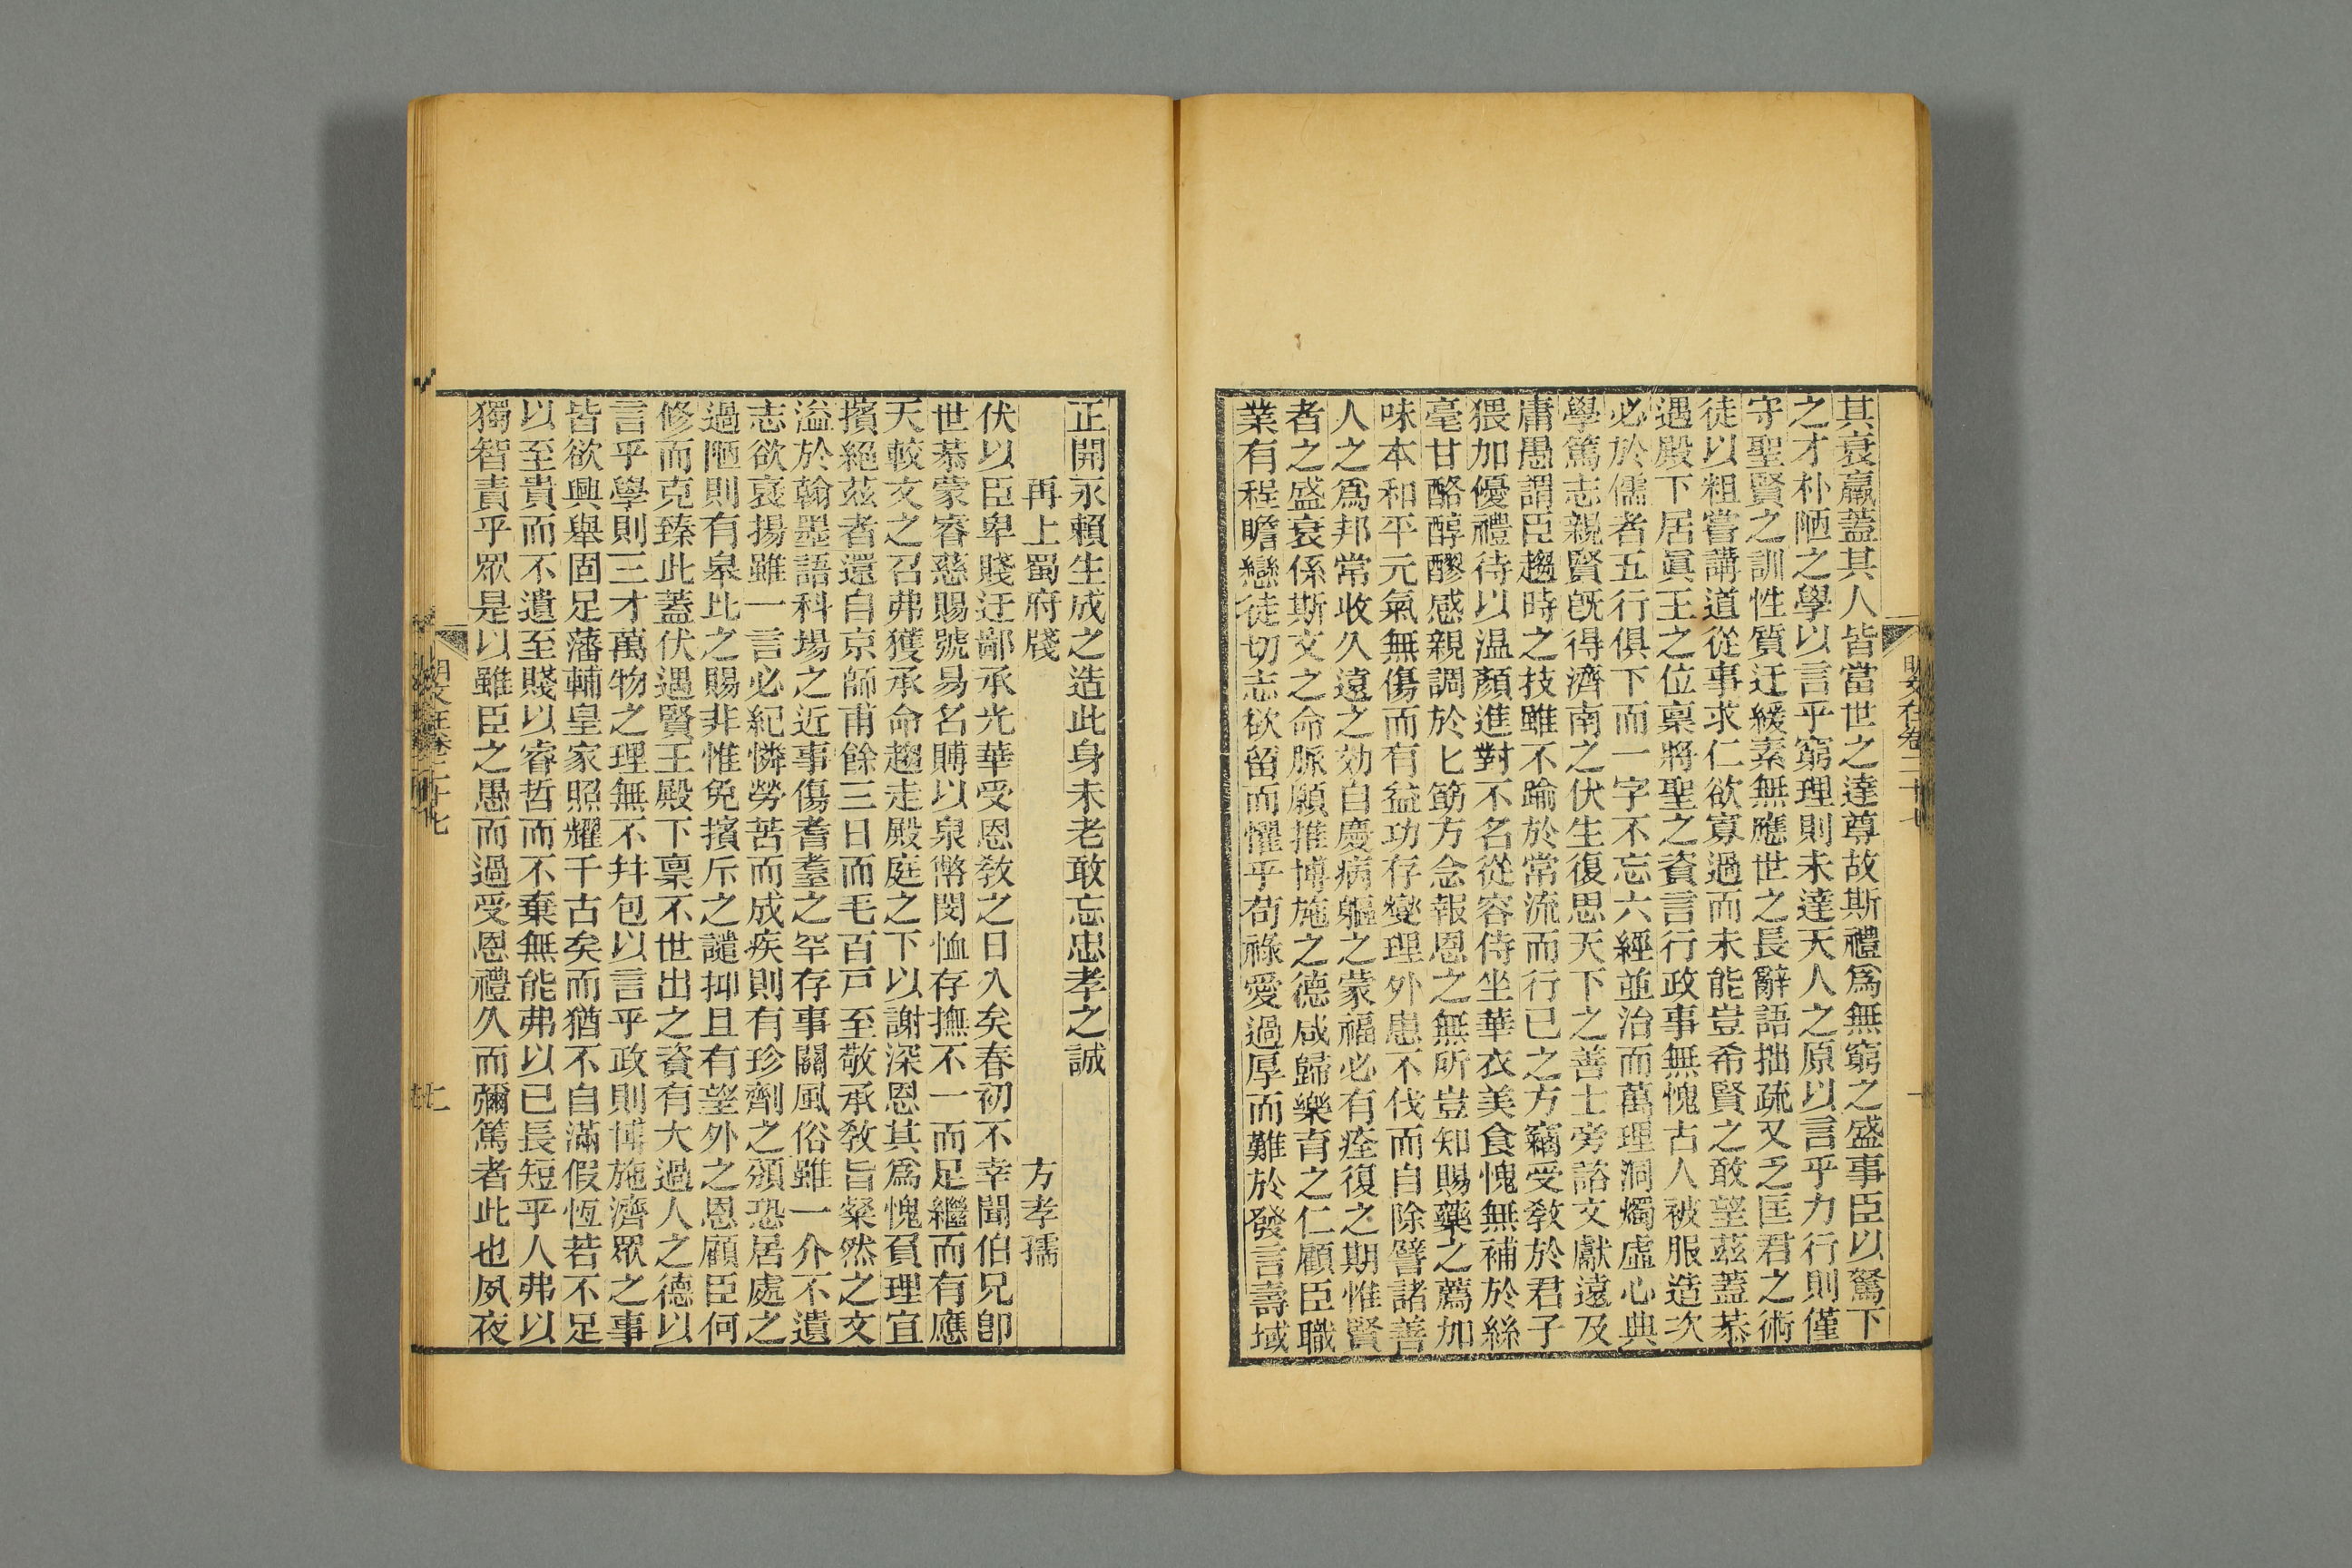 其衰羸蓋其人皆當世之達尊故斯禮爲無窮之盛事臣以駑下
之才朴陋之學以言乎窮理則未達天人之原以言乎力行則僅
守聖賢之訓性質迂緩素無應世之長辭語拙疏又乏匡君之術
徒以粗嘗講道從事求仁欲寡過而未能豈希賢之敢望茲蓋恭
遇殿下居眞王之位稟將聖之資言行政事無愧古人被服造次
必於儒者五行俱下而一字不忘六經並治而萬理洞燭虛心典
學篤志親賢旣得濟南之伏生復思天下之善士旁諮文獻遠及
庸愚謂臣趨時之技雖不踰於常流而行已之方竊受敎於君子
猥加優禮待以温顏進對不名從容侍坐華衣美食愧無補於絲
毫甘酪醇醪感親調於匕筯方念報恩之無所豈知賜藥之薦加
味本和平元氣無傷而有益功存燮理外患不伐而自除譬諸善
人之爲邦常收久遠之効自慶病軀之蒙福必有痊復之期惟賢
者之盛衰係斯文之命脈願推博施之德咸歸樂育之仁顧臣職
業有程瞻戀徒切志欲留而懼乎苟祿愛過厚而難於發言壽域
明文在卷二十七
正開永賴生成之造此身未老敢忘忠孝之誠
再上蜀府牋 方孝孺
伏以臣卑賤迂鄙承光華受恩敎之日入矣春初不幸聞伯兄卽
世恭蒙睿慈賜號易名賻以泉幣閔恤存撫不一而足繼而有應
天較文之召弗獲承命趨走殿庭之下以謝深恩其爲愧負理宜
擯絕茲者還自京師甫餘三日而毛百戸至敬承敎旨粲然之文
溢於翰墨語科場之近事傷耆耋之罕存事關風俗雖一介不遺
志欲裒揚雖一言必紀憐勞苦而成疾則有珍劑之頒恐居處之
過陋則有臯比之賜非惟免擯斥之譴抑且有望外之恩顧臣何
修而克臻此蓋伏遇賢王殿下稟不世出之資有大過人之德以
言乎學則三才萬物之理無不幷包以言乎政則博施濟眾之事
皆欲興舉固足藩輔皇家照耀千古矣而猶不自滿假恆若不足
以至貴而不遺至賤以睿哲而不棄無能弗以已長短乎人弗以
獨智責乎眾是以雖臣之愚而過受恩禮久而彌篤者此也夙夜
明文在卷二十七